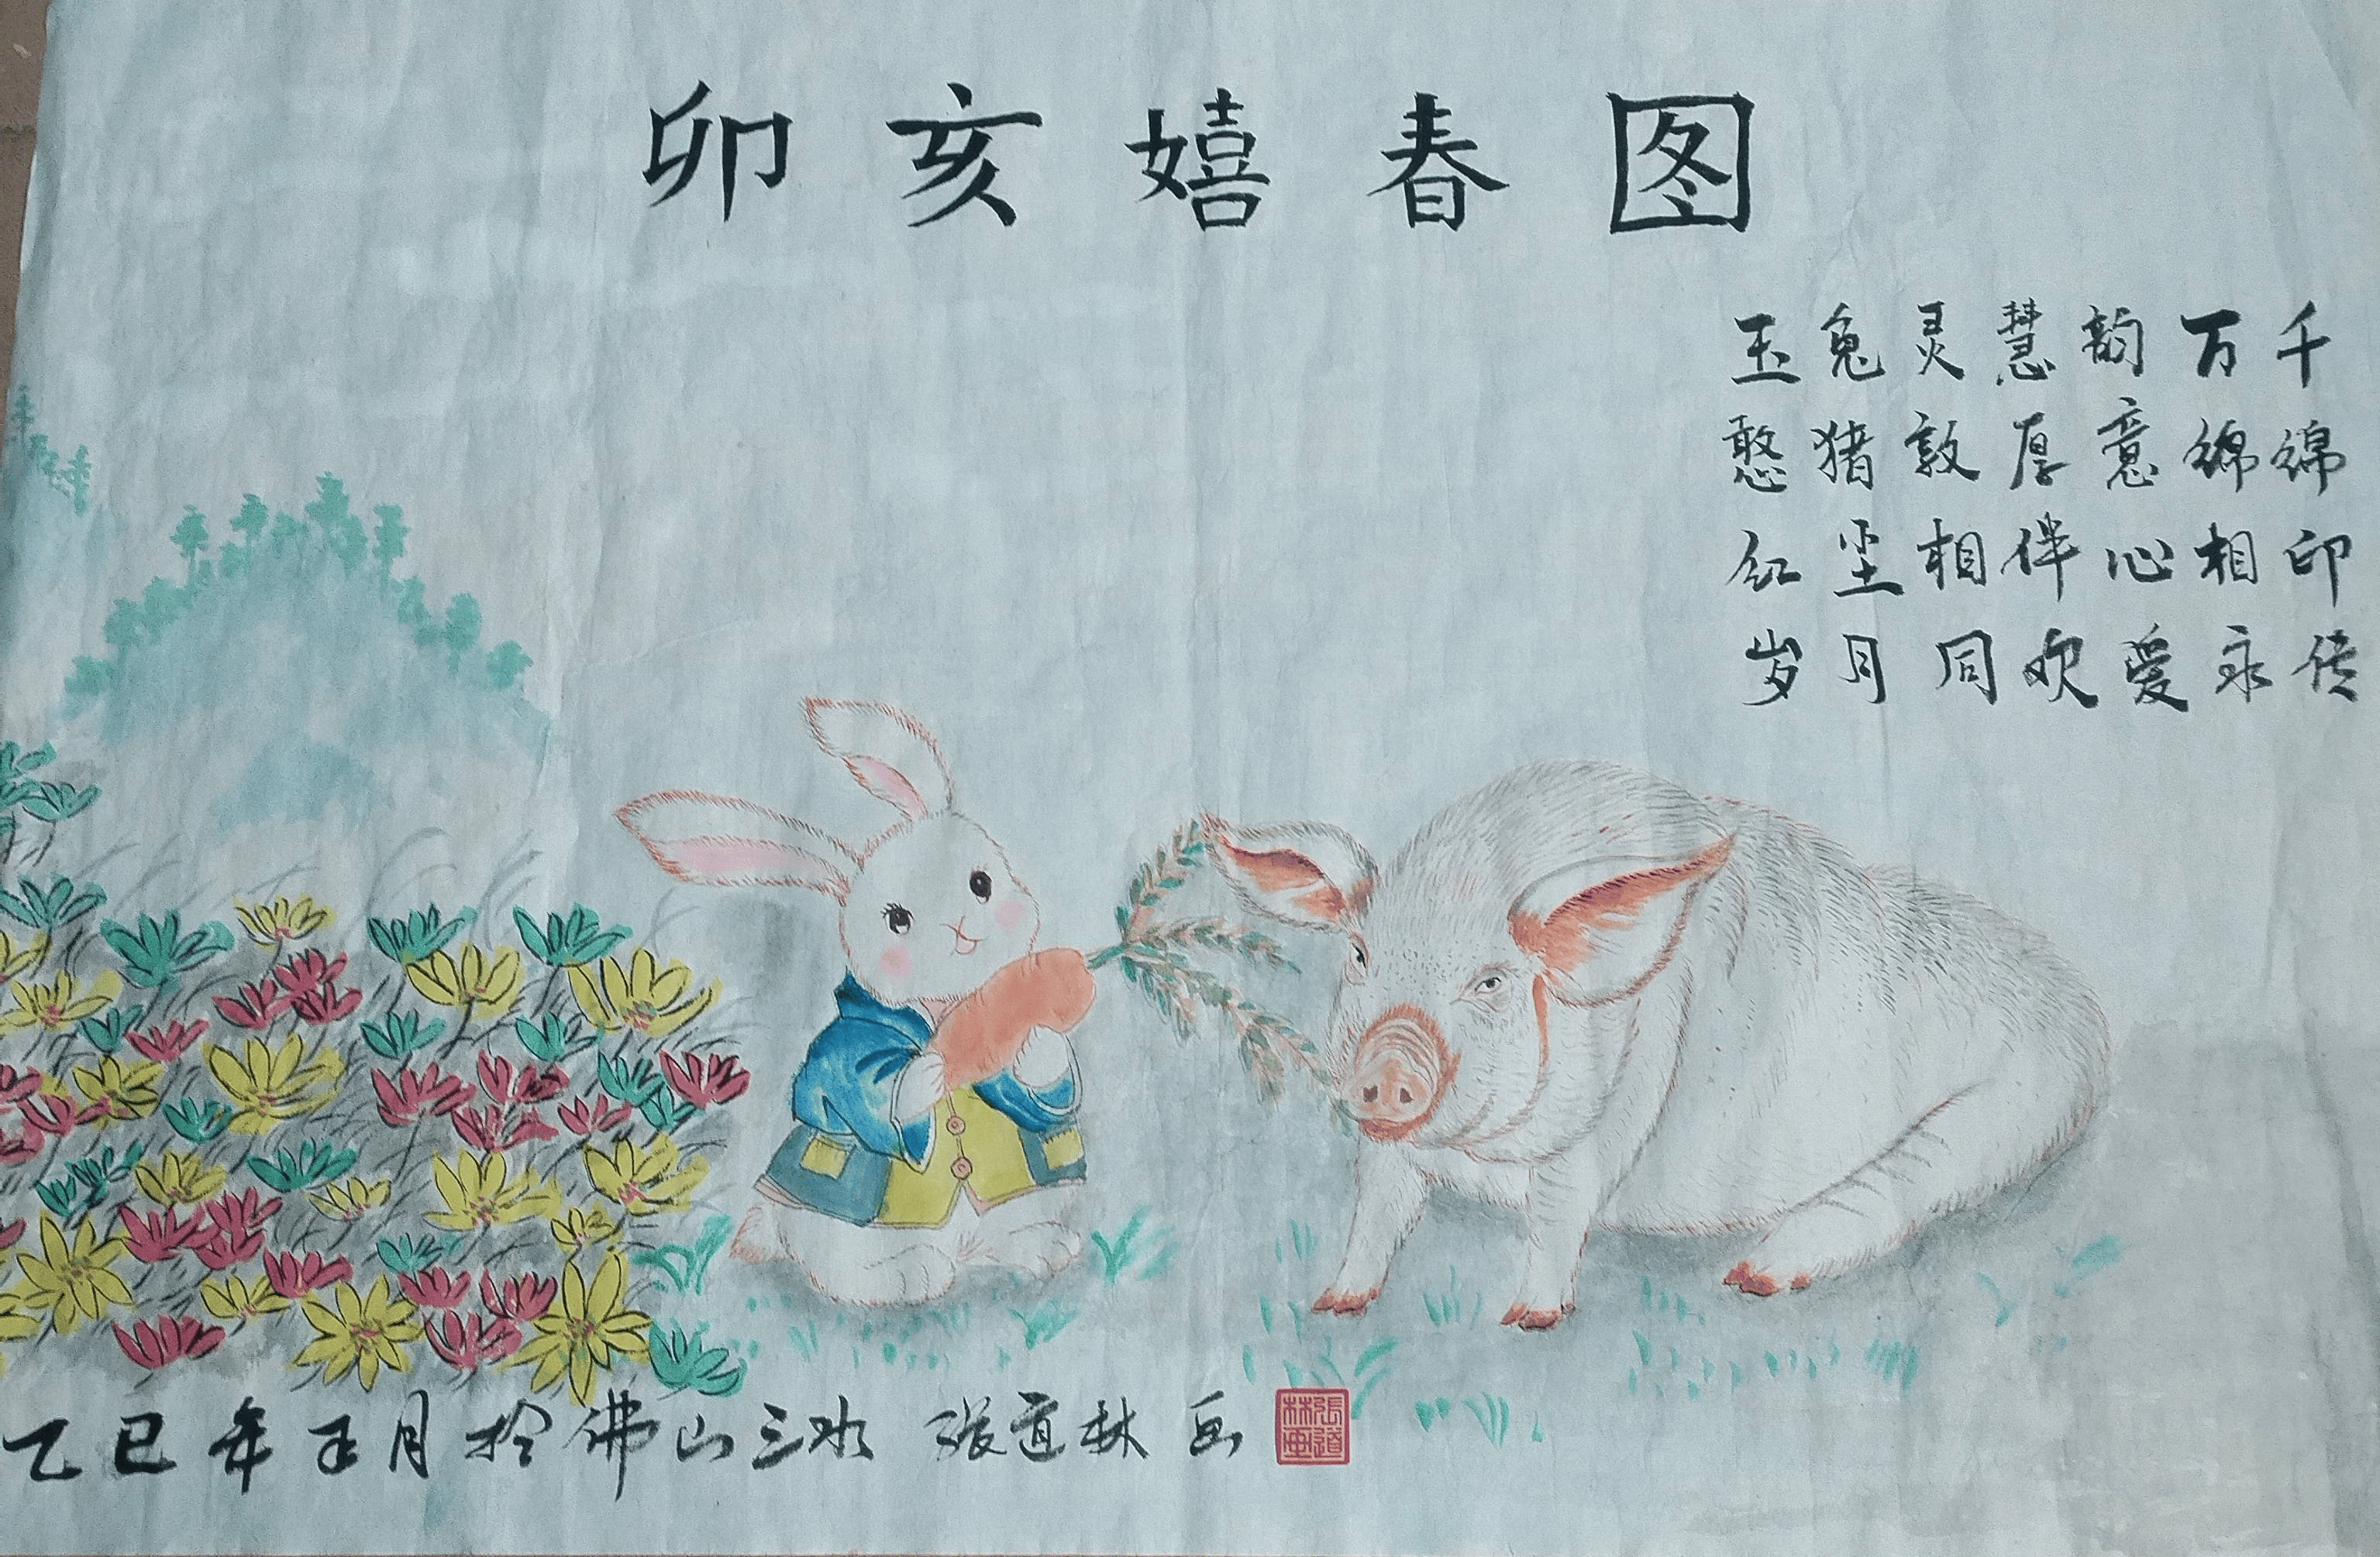 卯亥嬉春图
玉兔灵慧韵万千
憨猪敦厚意绵绵
红尘相伴心相印
岁月同欢爱永传
乙巳年正月于佛山三水 张道林 画
張道林画